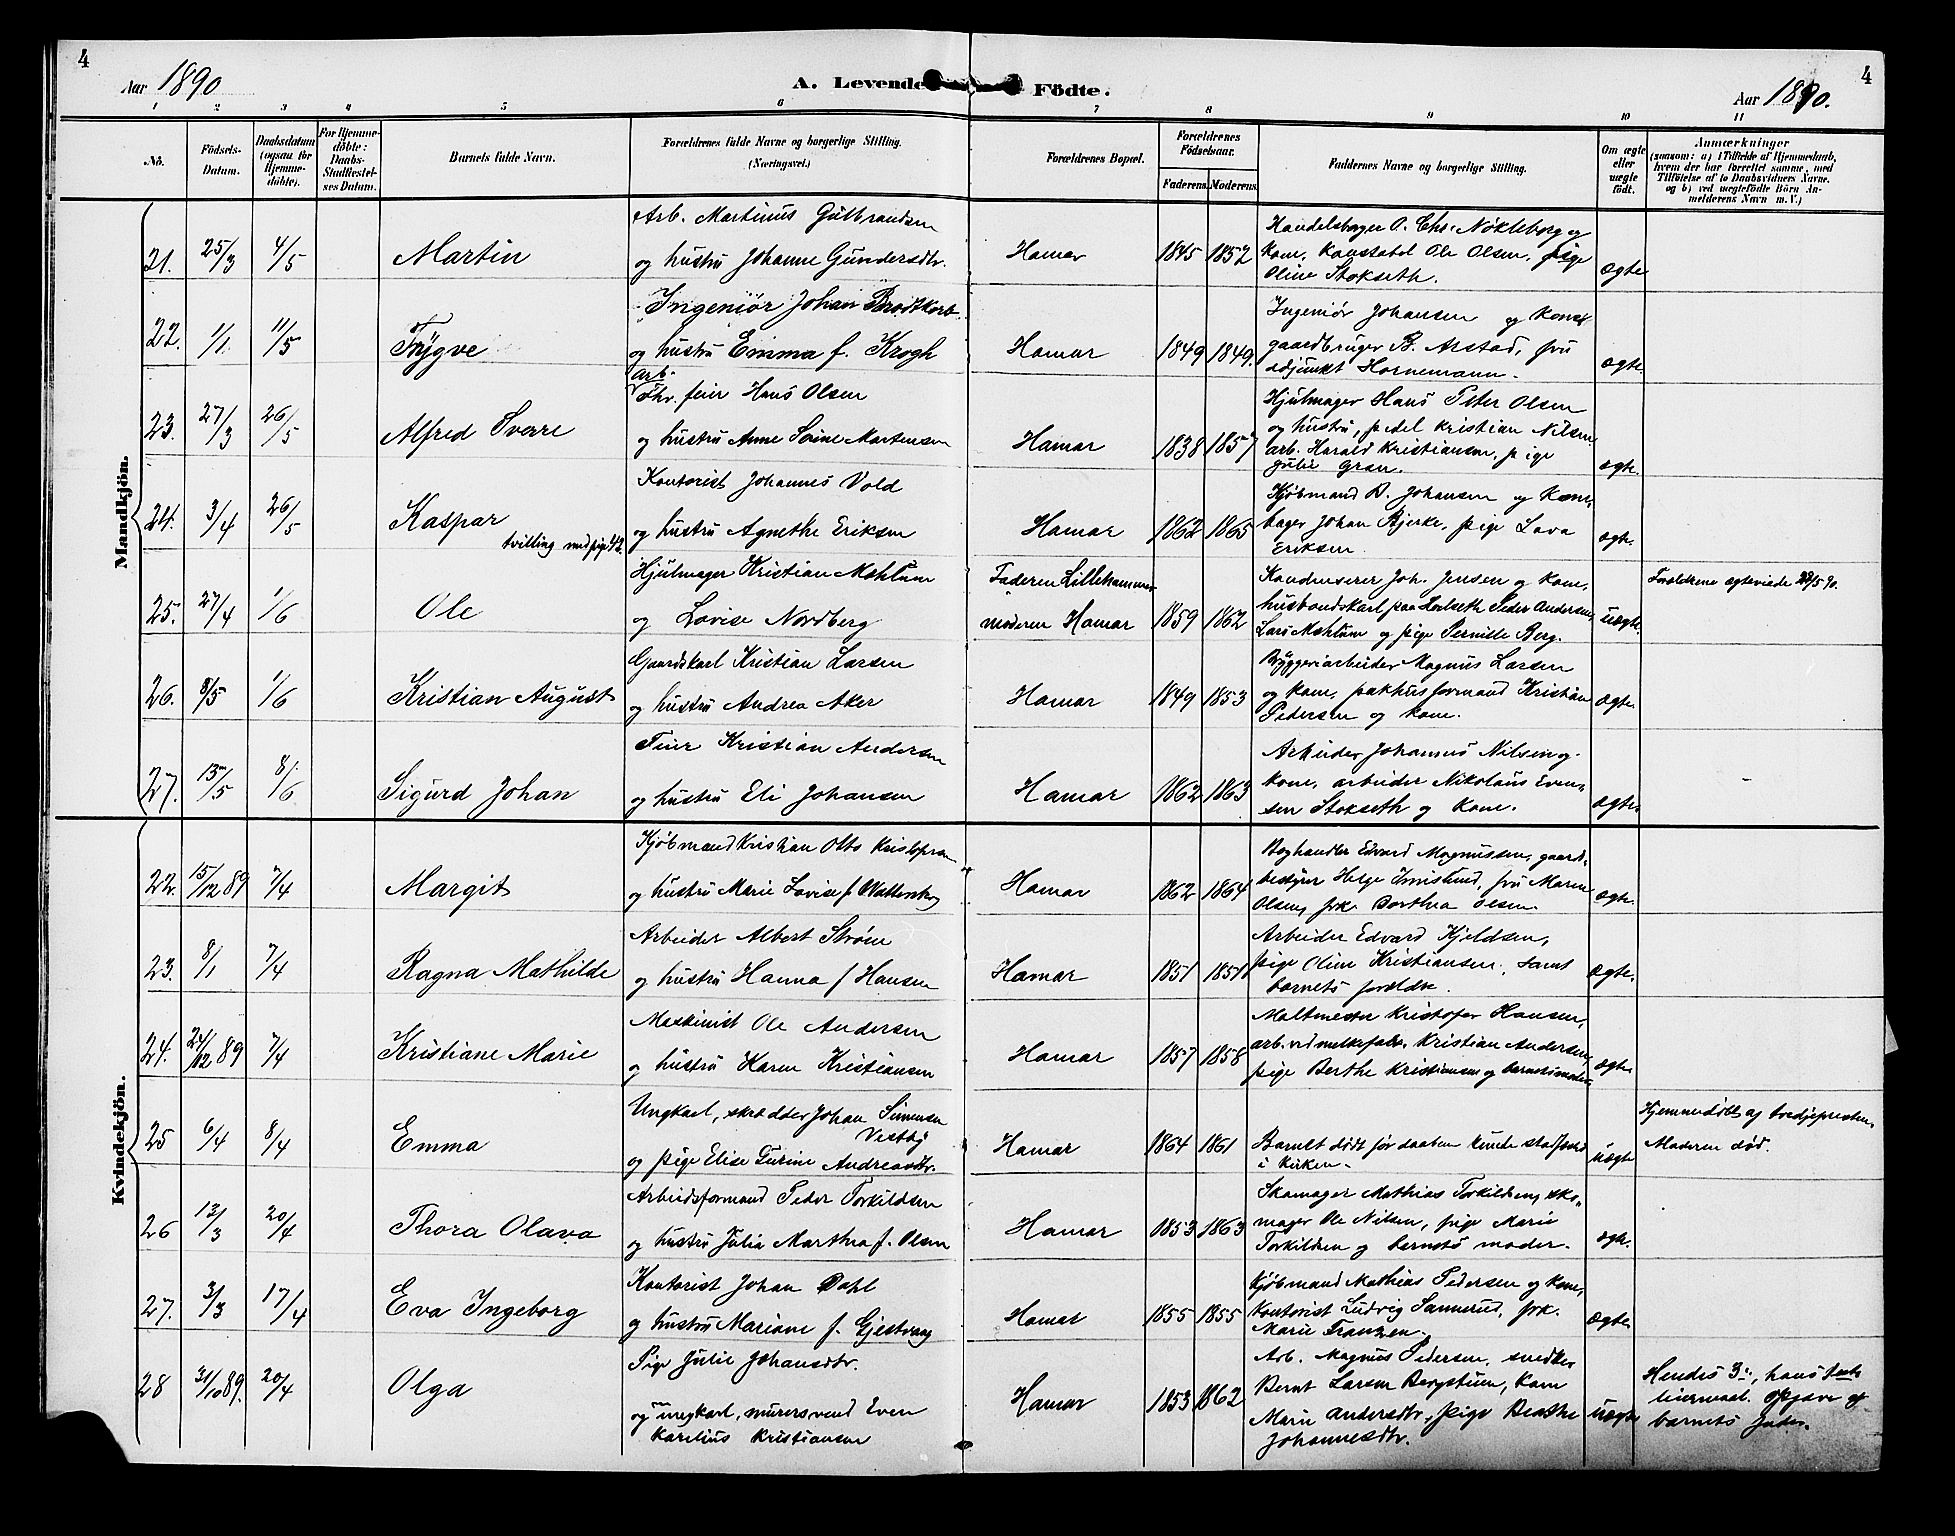 4
Aar 1890
A. Levende Födte.
Aar 1890.
4
1 2 3 4 5 6 7 8 9 10 11
No.
Födsels-Datum.
Daabsdatum (ogsaa for Hjemmedöbte).
For Hjemmedöbte: Daabs-Stadfæstelses Datum.
Barnets fulde Navn.
Forældrenes fulde Navne og borgerlige Stilling. (Næringsvei.)
Forældrenes Bopæl.
Forældrenes Födselsaar.
Faderens. Moderens.
Faddernes Navne og borgerlige Stilling.
Om ægte eller uægte födt.
Anmærkninger
(saasom: a) i Tilfælde af Hjemmedaab, hvem der har forrettet samme, med Tilföielse af to Daabsvidners Navne, og b) ved uægtefödte Börn Anmelderens Navn m. V.)
Mandkjön.
21. 25/3 4/5 Martin
Arb. Martinus Gulbrandsen
og hustru Johanne Gundersdtr.
Hamar 1845 1852
Handelsborger O. Chr. Nøkleborg og
kone, Konstabel Ole Olsen, pige
Oline Stokseth.
ægte
22. 1/1 11/5 Trygve
Ingeniør Johan Brodtkorb
og hustru Emma f. Krogh
Hamar 1849 1849.
Ingeniør Johansen og kone
gaardbruger B. Arstad, fru
adjunkt Hornemann.
ægte.
23. 27/3 26/5 Alfred Sverre
arb.
Fhv. feier Hans Olsen
og hustru Anne Sorine Mortensen
Hamar 1838 1857
Hjulmager Hans Peter Olsen
og hustru, pedel Kristian Nilsen
arb. Harald Kristiansen, pige
Julie Gran.
ægte.
24. 3/4 26/5 Kaspar
tvilling med pige 42
Kontorist Johannes Vold
og hustru Agnethe Eriksen
Hamar 1862 1865
Kjøbmand B. Johansen og kone
bager Johan Bjerke, pige Lava
Eriksen.
ægte.
25. 27/4 1/6 Ole
Hjulmager Kristian Mæhlum
og Lovise Nordberg
Faderen Lillehammer
moderen Hamar 1859 1862
Kondukterer Joh. Jensen og kone,
husbondskarl paa Peder Andersen,
Lars Mæhlum og pige Pernille Berg.
uægte.
Forældrene ægteviede 29/5 90.
26. 8/5 1/6 Kristian August
Gaardskarl Kristian Larsen
og hustru Andrea Aker
Hamar 1849 1853
Byggeriarbeider Magnus Larsen
og kone, pakhusformand Kristian
Pedersen og kone.
ægte.
27. 13/5 8/6 Sigurd Johan
Feier Kristian Andersen
og hustru Eli Johansen
Hamar 1862 1863
Arbeider Johannes Nilsen og
kone, arbeider Nikolaus Even-
sen Stokseth og kone.
ægte.
Kvindekjön.
22. 15/12 89 7/4 Margit
Kjøbmand Kristian Otto Kristofersen
og hustru Marie Lovise f
Hamar 1862 1864
Boghandler Edvard Magnussen, gaard-
bestyrer Helge Imislund, fru Maren
Olsen, frk. Borthea Olsen.
ægte.
23. 8/1 7/4 Ragna Mathilde
Arbeider Albert Strøm
og hustru Hanna f Hansen
Hamar 1851 1851
Arbeider Edvard Kjeldsen,
pige Oline Kristiansen, samt
barnets forældre.
ægte.
24. 24/12 89 7/4 Kristiane Marie
Maskinist Ole Andersen
og hustru Karen Kristiansen
Hamar 1857 1858
Maltmester Kristofer Hansen,
arb. ved melkefabr. Kristian Andersen,
pige Berthe Kristiansen og barnets moder.
ægte
25 6/4 8/4 Emma
Ungkarl, skrædder Johan Simensen
Vestby
og pige Elise Turine Andreasdtr.
Hamar 1864 1861
Barnet dødt før daaben kunde stadfæstes
i kirken.
uægte
Hjemmedøbt af tredjepresten.
Moderen død.
26 13/3 20/4 Thora Olava
Arbeidsformand Peder Torkildsen
og hustru Julia Marthea f. Olsen
Hamar 1853 1863
Skomager Mathias Torkildsen, sko-
mager Ole Nilsen, pige Marie
Torkildsen og barnets moder.
ægte.
27. 3/3 17/4 Eva Ingeborg
Kontorist Johan Dahl
og hustru Mariane f. Gjestvang
Hamar 1855 1855
Kjøbmand Mathias Pedersen og kone,
Kontorist Ludvig Sannerud, frk.
Marie Franzen.
ægte
28 31/10 89. 20/4 Olga
Pige Julie Johansdtr.
og ungkarl, murersvend Even
Karelius Kristiansen
Hamar 1853 1862
Arb. Magnus Pedersen, snedker
Bernt Larsen Bergstuen, kone
Marie Andersdtr, pige Beathe
Johannesdtr.
uægte
Hendes 3die, hans
leiermaal. Opgave af
barnets fader.